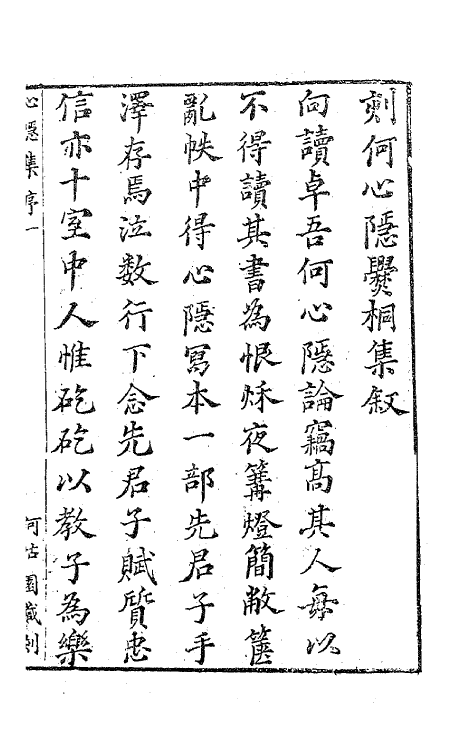 刻何心隱爨桐集叙
向讀卓吾何心隱論竊高其人每以
不得讀其書為恨秌夜篝燈簡敝篋
亂帙中得心隱寫本一部先君子手
澤存焉泣数行下念先君子賦質忠
信亦十室中人惟矻矻以教子為樂
心隱集序一
何古園藏刻